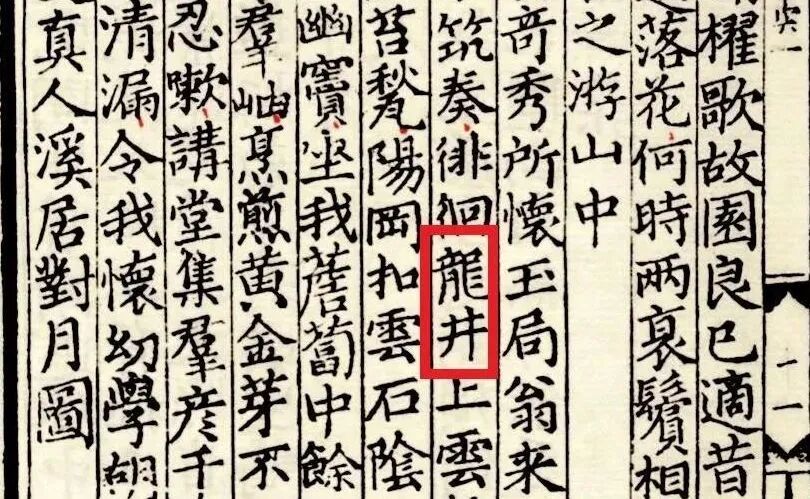 十一
櫂歌故園良已適昔
落花何時两衰鬢相
之游山中
奇秀所懷玉局翁来
筑奏徘徊龍井上雲
苔甃陽岡扣雲石陰
幽竇坐我薝蔔中餘
羣岫烹煎黄金芽不
忍嗽講堂集羣彦千
清漏令我懷幼學胡
真人溪居對月圖